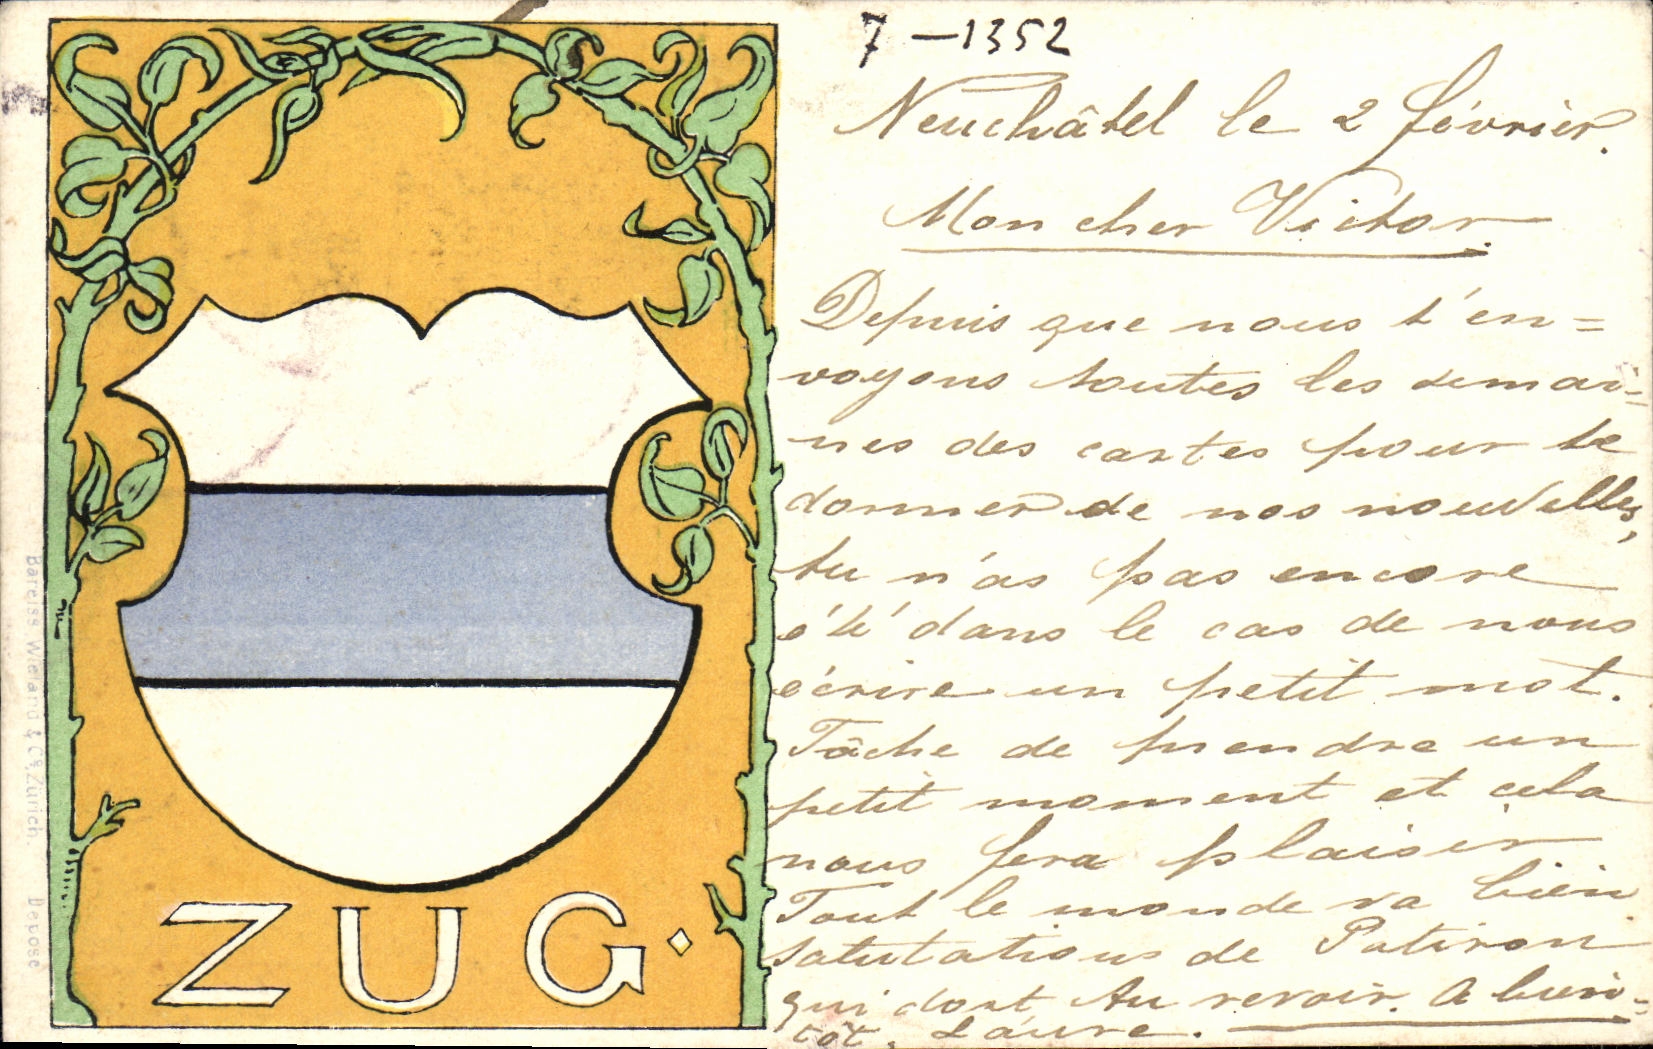 7 – 1352
Neuchâtel le 2 février.
Mon cher Victor
Depuis que nous t'en=
voyons toutes les semai=
nes des cartes pour te
donner de nos nouvelles,
tu n'as pas encore
été dans le cas de nous
écrire un petit mot.
Tâche de prendre un
petit moment et cela
nous fera plaisir
Tout le monde va bien.
salutations de
qui dort Au revoir. A bien=
tôt. Laure.
ZUG
Bareiss Wieland & Co. Zürich Deposé